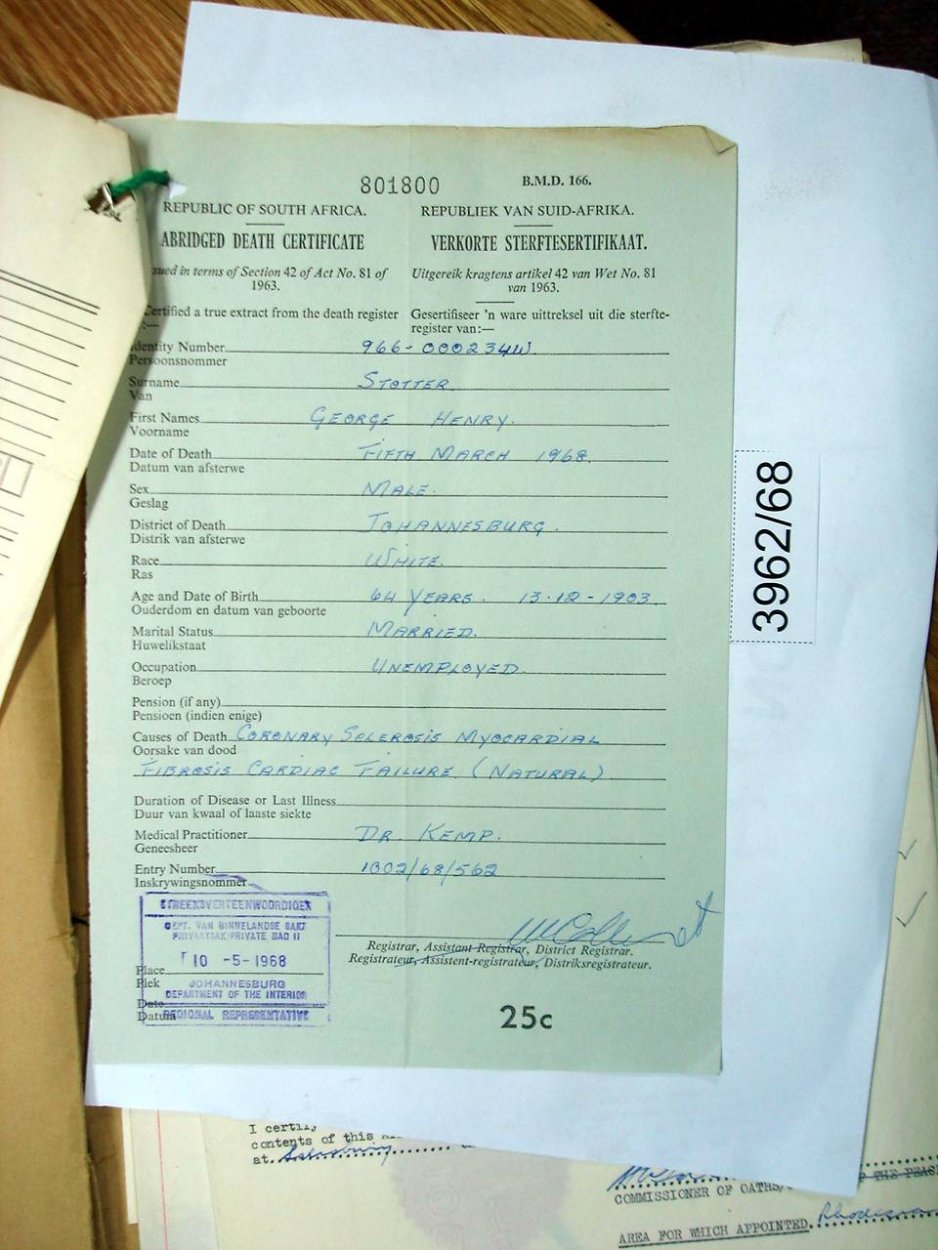 801800
B.M.D. 166.
REPUBLIC OF SOUTH AFRICA.
REPUBLIEK VAN SUID-AFRIKA.
ABRIDGED DEATH CERTIFICATE
VERKORTE STERFTESERTIFIKAAT.
sued in terms of Section 42 of Act No. 81 of
1963.
Uitgereik kragtens artikel 42 van Wet No. 81
van 1963.
Certified a true extract from the death register
:—
Gesertifiseer 'n ware uittreksel uit die sterfte-
register van:—
Identity Number 966-000234W
Persoonsnommer
Surname STOTTER
Van
First Names GEORGE HENRY.
Voorname
Date of Death FIFTH MARCH 1968
Datum van afsterwe
Sex MALE.
Geslag
District of Death JOHANNESBURG.
Distrik van afsterwe
Race WHITE.
Ras
Age and Date of Birth 64 YEARS. 13-12-1903
Ouderdom en datum van geboorte
Marital Status MARRIED.
Huwelikstaat
Occupation UNEMPLOYED.
Beroep
Pension (if any)
Pensioen (indien enige)
Causes of Death CORONARY SCLEROSIS MYOCARDIAL
Oorsake van dood
FIBROSIS CARDIAC FAILURE (NATURAL)
Duration of Disease or Last Illness
Duur van kwaal of laaste siekte
Medical Practitioner DR KEMP.
Geneesheer
Entry Number 1302/68/562
Inskrywingsnommer
STREEKSVERTEENWOORDIGER
DEPT. VAN BINNELANDSE SAKE
PRIVAATSAK/PRIVATE BAG 11
10 -5-1968
JOHANNESBURG
DEPARTMENT OF THE INTERIOR
REGIONAL REPRESENTATIVE
Place
Plek
Date
Datum
Registrar, Assistant Registrar, District Registrar.
Registrateur, Assistent-registrateur, Distriksregistrateur.
25c
3962/68
I certify
contents of this
at Salisbury
THE PEACE
COMMISSIONER OF OATHS
AREA FOR WHICH APPOINTED Rhodesia